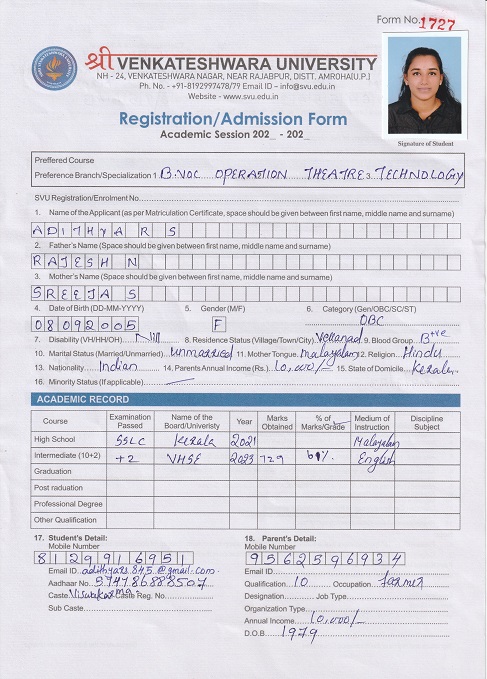 Form No. 1727
श्री VENKATESHWARA UNIVERSITY
NH - 24, VENKATESHWARA NAGAR, NEAR RAJABPUR, DISTT. AMROHA(U.P.)
Ph. No. - +91-8192997478/79 Email ID – info@svu.edu.in
Website - www.svu.edu.in
Registration/Admission Form
Academic Session 202_ - 202_
Signature of Student
Preffered Course
Preference Branch/Specialization 1. B.VOC OPERATION THEATRE 3. TECHNOLOGY
SVU Registration/Enrolment No.
1. Name of the Applicant (as per Matriculation Certificate, space should be given between first name, middle name and surname)
ADITHYA R S
2. Father's Name (Space should be given between first name, middle name and surname)
RAJESH N
3. Mother's Name (Space should be given between first name, middle name and surname)
SREEJA S
4. Date of Birth (DD-MM-YYYY) 5. Gender (M/F) 6. Category (Gen/OBC/SC/ST)
08092005 F OBC
7. Disability (VH/HH/OH) Nill 8. Residence Status (Village/Town/City) Vellanad 9. Blood Group B+ve
10. Marital Status (Married/Unmarried) unmarried 11. Mother Tongue malayalam 12. Religion Hindu
13. Nationality Indian 14. Parents Annual Income (Rs.) 10,000/- 15. State of Domicile Kerala
16. Minority Status (If applicable)
ACADEMIC RECORD
Course Examination Passed Name of the Board/Univeristy Year Marks Obtained % of Marks/Grade Medium of Instruction Discipline Subject
High School SSLC Kerala 2021 Malayalam
Intermediate (10+2) +2 VHSE 2023 729 61% English
Graduation
Post raduation
Professional Degree
Other Qualification
17. Student's Detail: 18. Parent's Detail:
Mobile Number Mobile Number
8129916951 9562596934
Email ID adithyars845@gmail.com Email ID
Aadhaar No. Qualification 10 Occupation Farmer
Caste Viswakarma Caste Reg. No. Designation Job Type
Sub Caste Organization Type
Annual Income 10,000/-
D.O.B 1979